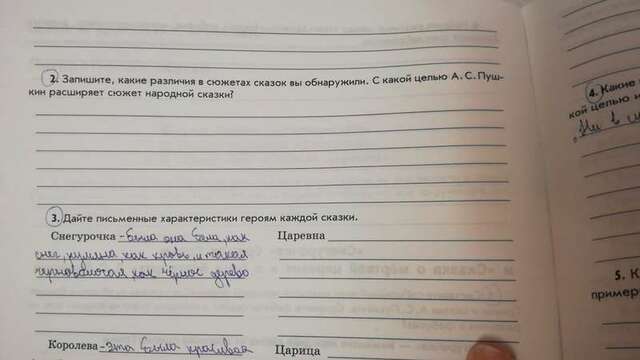 2. Запишите, какие различия в сюжетах сказок вы обнаружили. С какой целью А. С. Пуш-
кин расширяет сюжет народной сказки?
4. Какие
кой целью и
3. Дайте письменные характеристики героям каждой сказки.
Снегурочка - была она бела, как
Царевна
снег, румяна, как кровь, и такая
черноволосая, как чёрное дерево
5. К
пример
Королева - эта была красивая
Царица